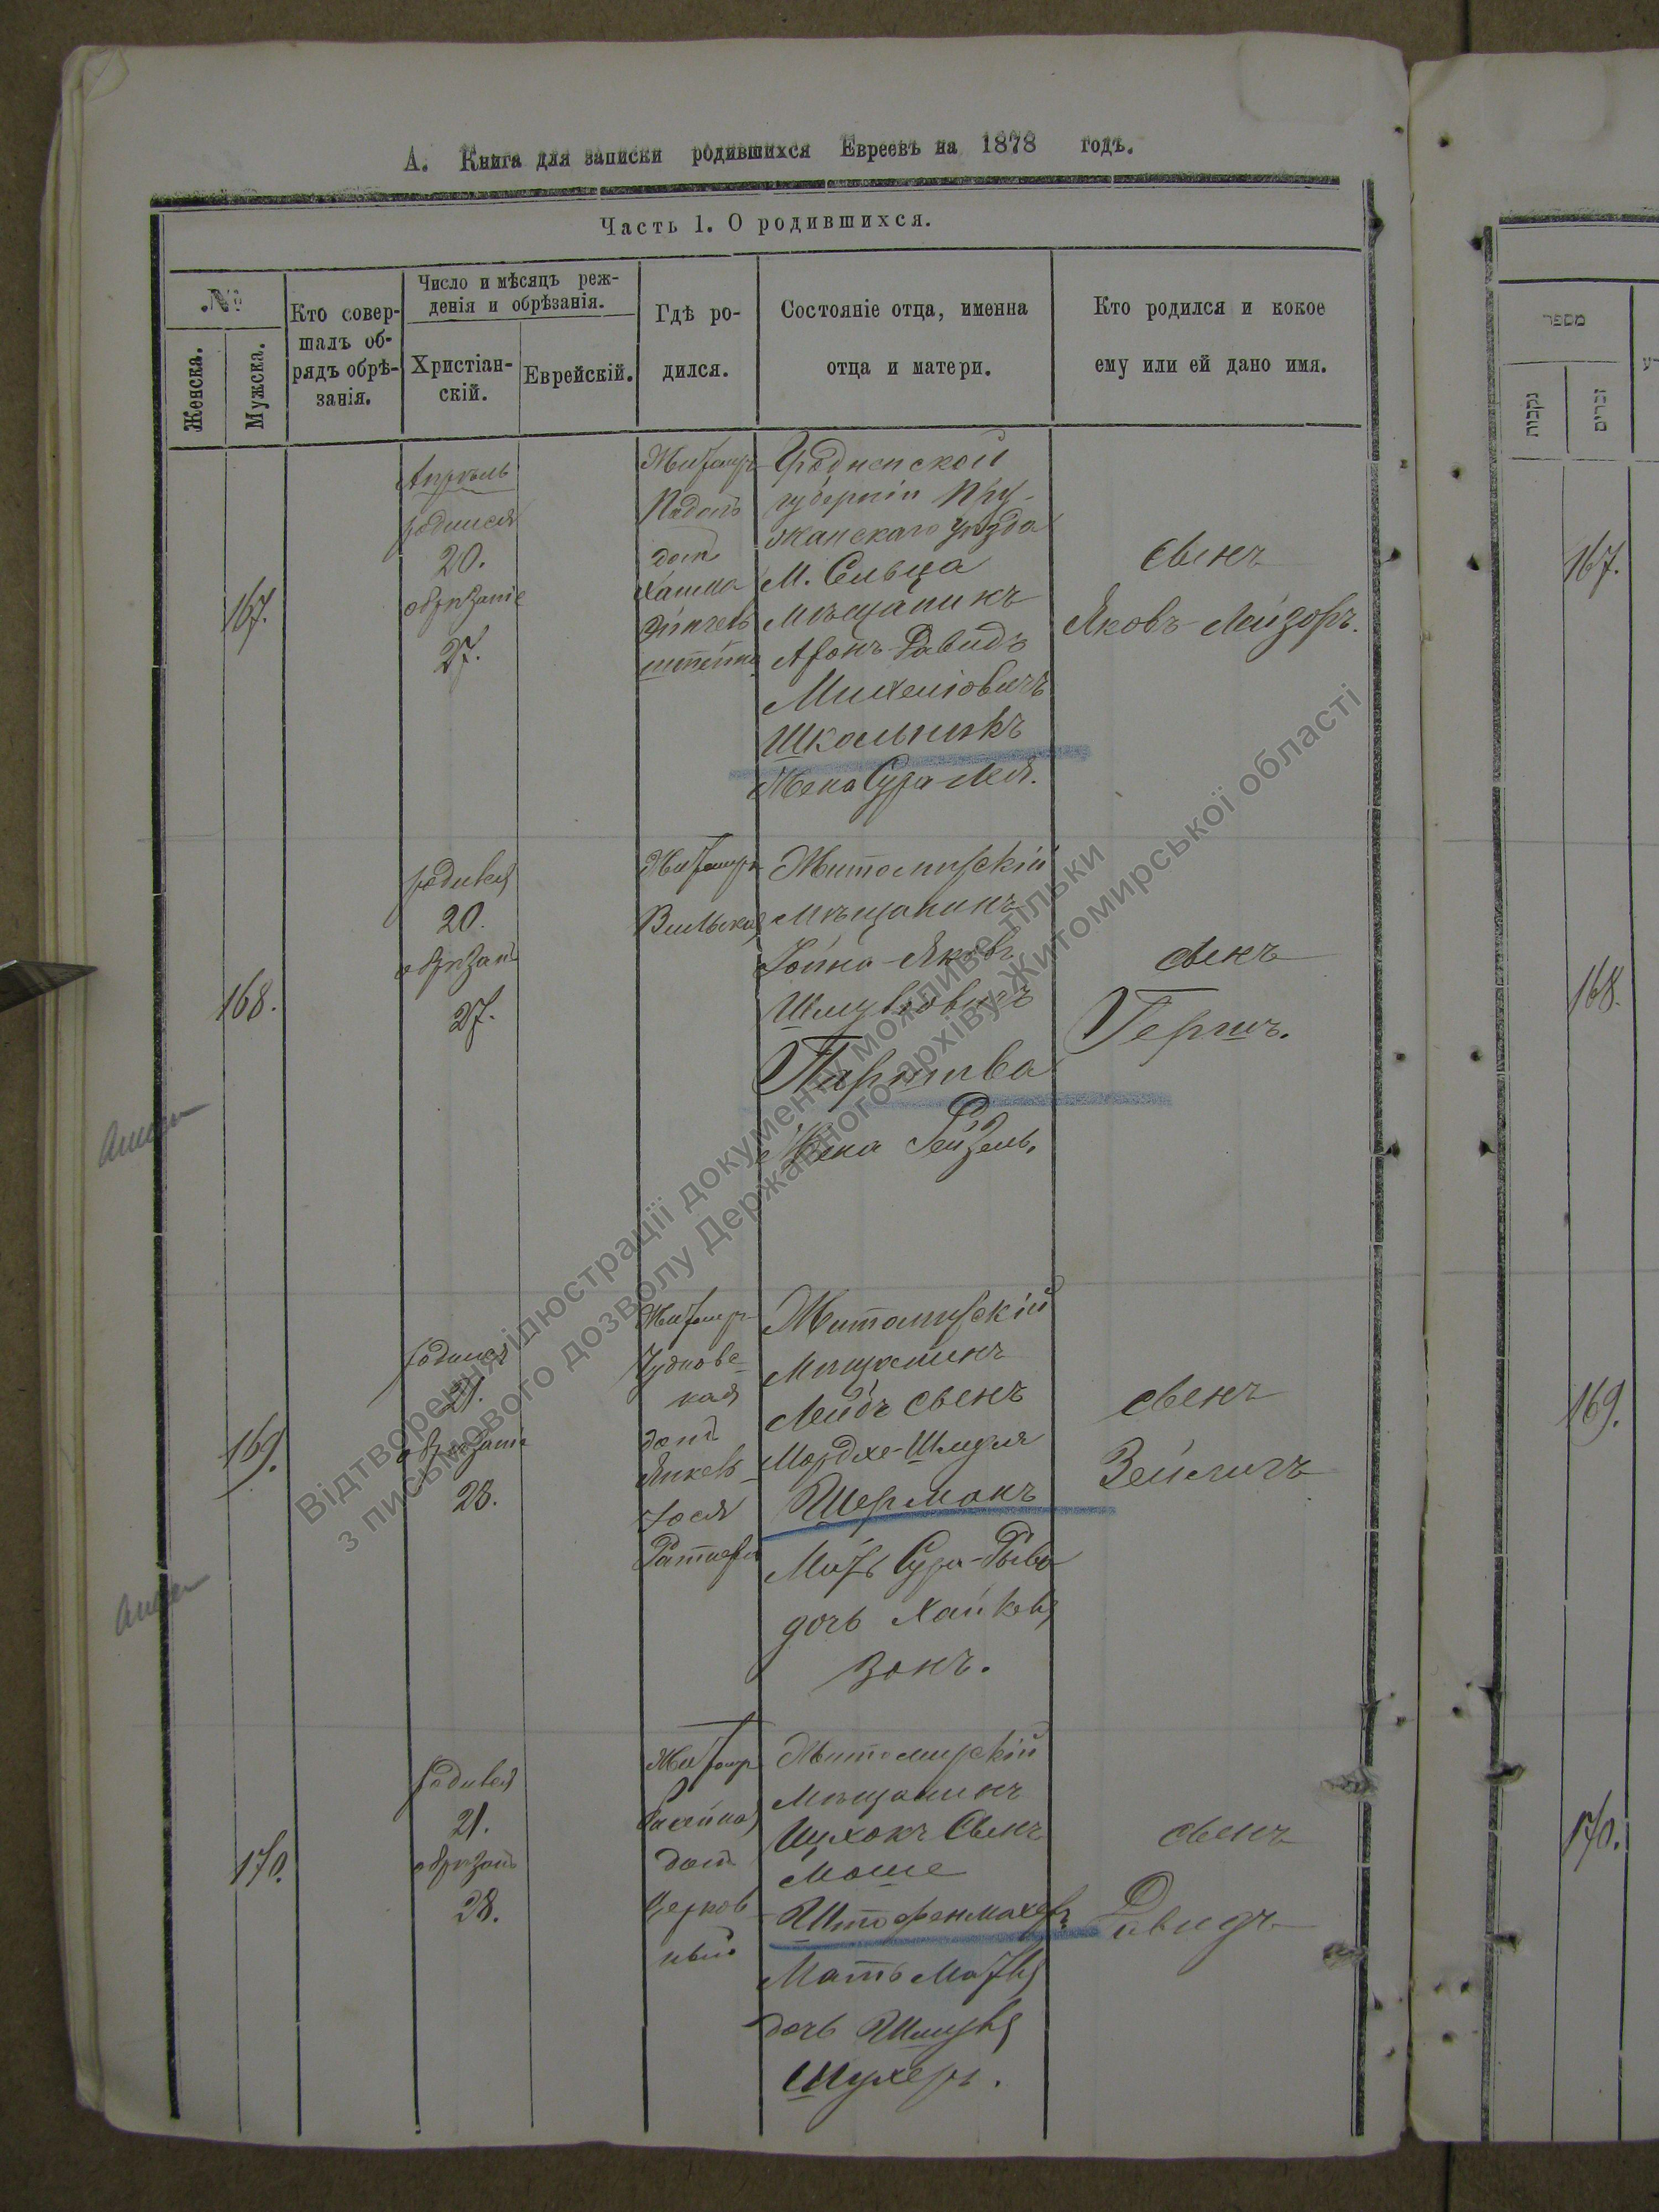 А. Книга для записки родившихся Евреевъ на 1878 годъ.
Часть 1. О родившихся.
№
Женска.
Мужска.
Кто совер-
шалъ об-
рядъ обрѣ-
занія.
Число и мѣсяцъ реж-
денія и обрѣзанія.
Христіан-
скій.
Еврейскій.
Гдѣ ро-
дился.
Состояніе отца, именна
отца и матери.
Кто родился и кокое
ему или ей дано имя.
167.
Апрѣль
родился
20.
обрѣзаніе
27.
Житомръ
домъ
Гродненской
губерніи Пру-
жанскаго уѣзда
М. Сельца
мѣщанинъ
Аронъ-Давидъ
Михелговичъ
Школьникъ
Жена Сура-Лея.
сынъ
Яковъ-Лейзоръ.
168.
родился
20.
обрѣзанъ
27.
Житомръ
Вильская
Житомирскій
мѣщанинъ
Іойна-Яковъ
Шмулговичъ
Паршива
Жена Рейзель.
сынъ
Гершъ.
169.
родился
21.
обрѣзаніе
28.
Житомр
Чуднов-
ская
домъ
Янкель-
Іося
Житомирскій
мѣщанинъ
Лейбъ сынъ
Мордхе-Шмуля
Шерманъ
Мать Сура-Рыва
дочь
зонъ.
сынъ
Зейлигъ
170.
родился
21.
обрѣзанъ
28.
Житомр
домъ
Церков-
ный
Житомирскій
мѣщанинъ
Ицхокъ Сынъ
Моше
Штофенмахеръ
Мать
дочь Шмуля
Шухеръ.
сынъ
Давидъ
מספר
נקבות
זכרים
167.
168.
169.
170.
Відтворення ілюстрації документу можливе тільки
з письмового дозволу Державного архіву Житомирської області